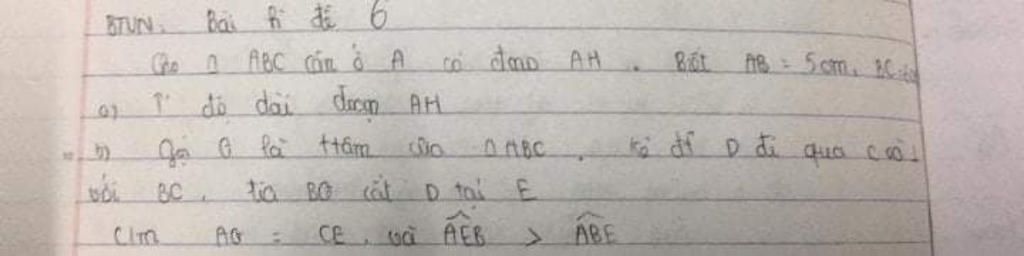 BTVN: Bài hì đề 6
Cho △ ABC cân ở A có đcao AH. Biết AB = 5cm, BC
a) T' độ dài đoạn AH
b) Gọi G là ttâm của △ABC. kẻ đt D đi qua C và ⊥
với BC, tia BG cắt D tại E
C/m AG = CE, và AEB > ABE